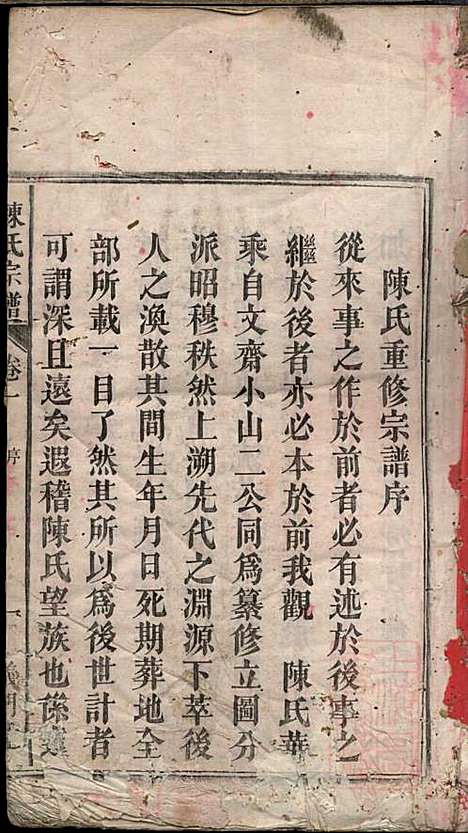 陳氏重修宗譜序
從來事之作於前者必有述於後事之
繼於後者亦必本於前我觀　陳氏華
乘自文齋小山二公同爲纂修立圖分
派昭穆秩然上溯先代之淵源下萃後
人之渙散其間生年月日死期葬地全
部所載一目了然其所以爲後世計者
可謂深且遠矣遐稽陳氏望族也係
陳氏宗譜
卷一
序
一